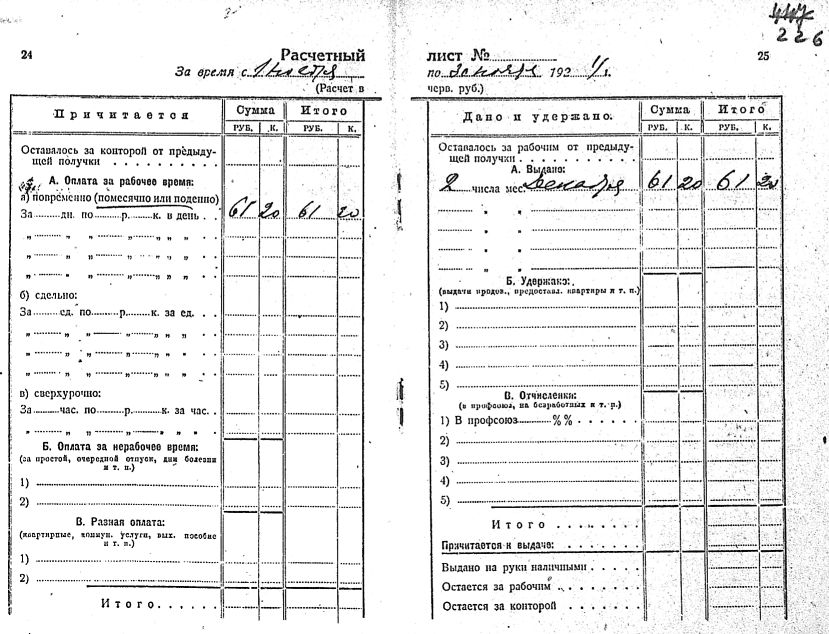 447
226
24
Расчетный
За время с 1 ноября
(Расчет в
Причитается
Сумма
Итого
РУБ. К. РУБ. К.
Оставалось за конторой от предыду-
щей получки
А. Оплата за рабочее время:
а) повременно (помесячно или поденно)
За дн. по р. к. в день 61 20 61 20
„ „ „ „ „ „ „
„ „ „ „ „ „ „
„ „ „ „ „ „ „
б) сдельно:
За ед. по р. к. за ед.
„ „ „ „ „ „ „
„ „ „ „ „ „ „
„ „ „ „ „ „ „
в) сверхурочно:
За час. по р. к. за час.
„ „ „ „ „ „ „
Б. Оплата за нерабочее время:
(за простой, очередной отпуск, дни болезни
и т. п.)
1)
2)
В. Разная оплата:
(квартирные, коммун. услуги, вых. пособие
и т. п.)
1)
2)
Итого
лист №
25
по 30 ноября 1931 г.
черв. руб.)
Дано и удержано:
Сумма
Итого
РУБ. К. РУБ. К.
Оставалось за рабочим от предыду-
щей получки
А. Выдано:
2 числа мес. Декабря 61 20 61 20
„ „
„ „
„ „
„ „
Б. Удержано:
(выдачи продов., предоставл. квартиры и т. п.)
1)
2)
3)
4)
5)
В. Отчисления:
(в профсоюз, на безработных и т. п.)
1) В профсоюз %%
2)
3)
4)
5)
Итого
Причитается к выдаче:
Выдано на руки наличными
Остается за рабочим
Остается за конторой